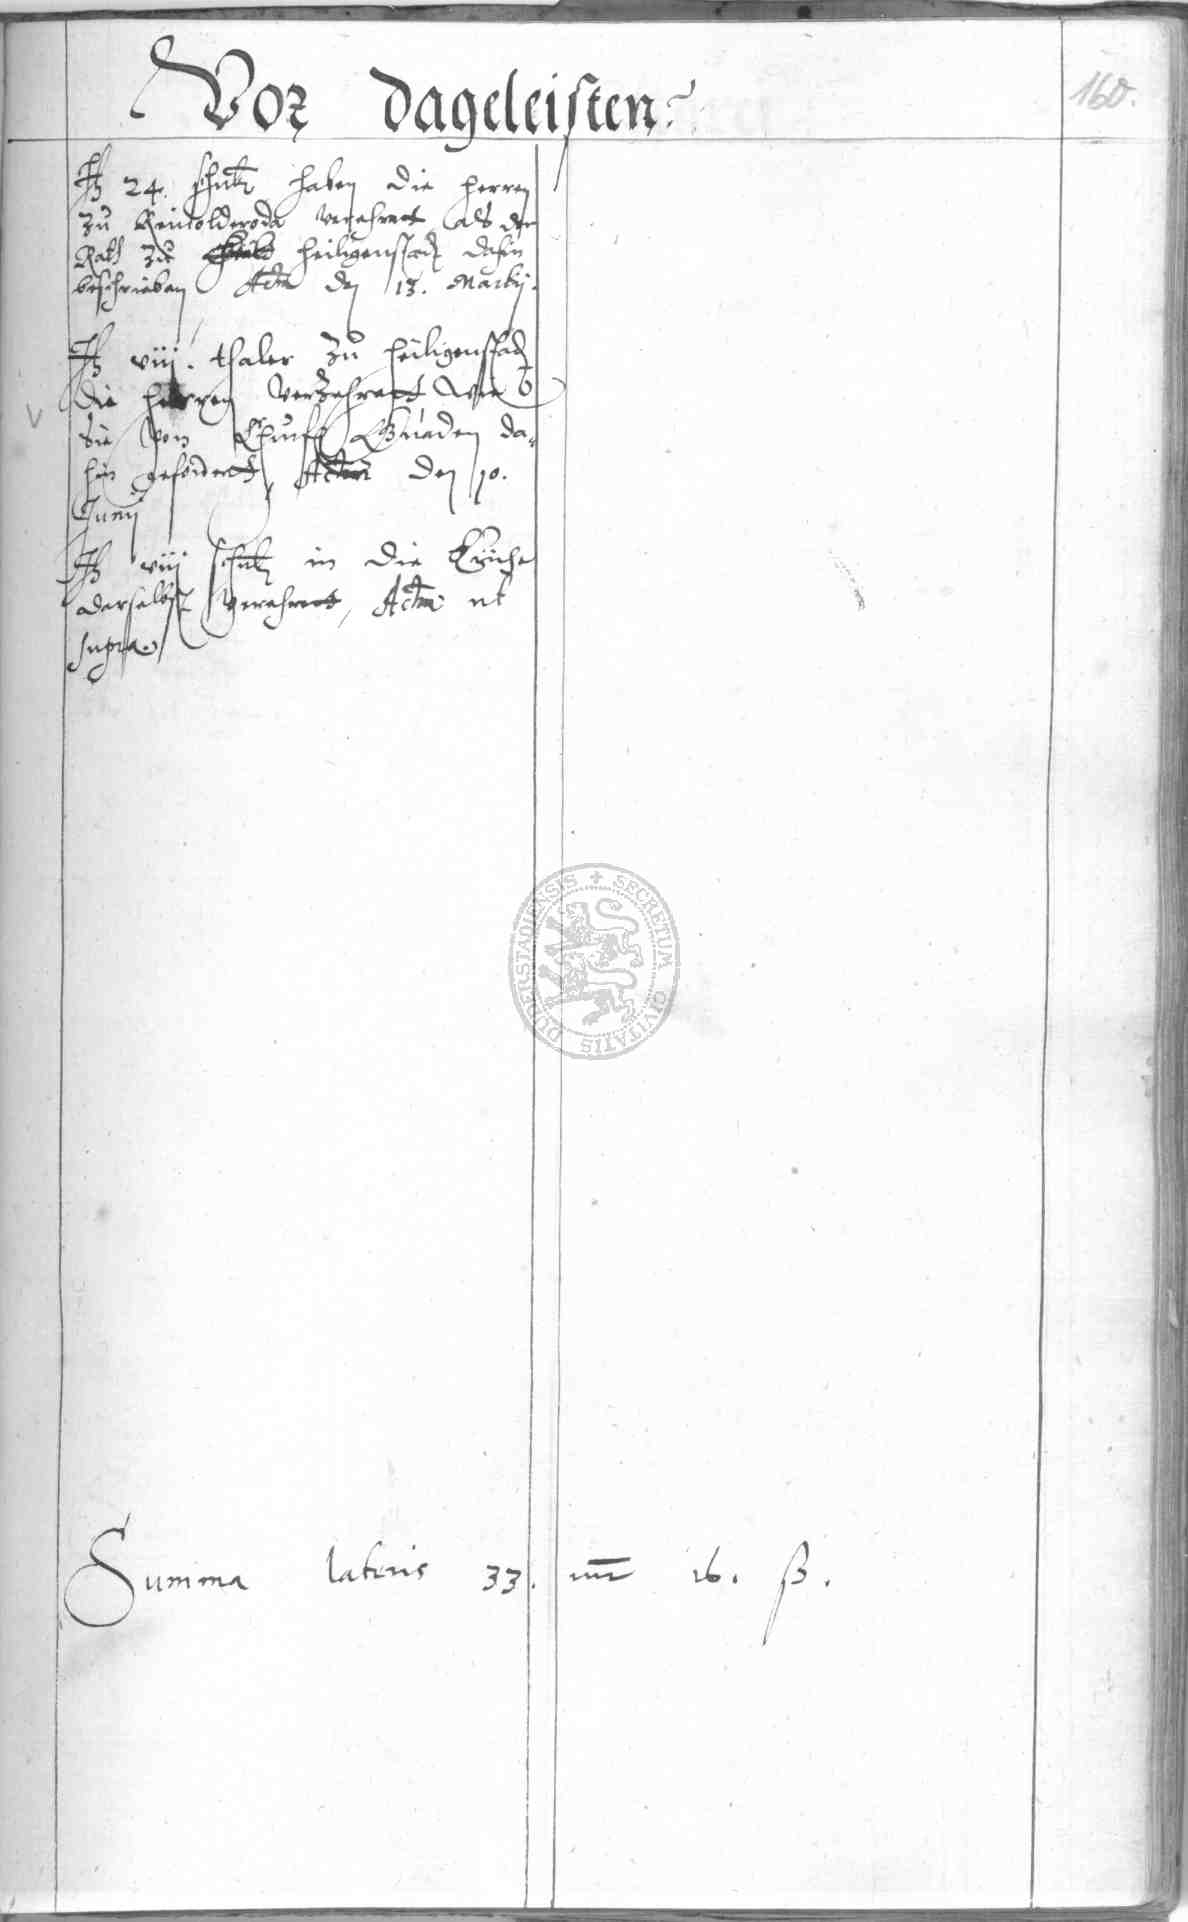 Vor dageleisten
160.
It 24. schnb haben die herren
zu Reinolderoda verzehrett als der
Rath zu heiligenstadt dahin
beschrieben Actum den 13. Martij.
It viij. thaler zu heiligenstadt
die herren verzehrett wie
Sie von Churf Gnaden da-
hin gefordertt, Actum den 10.
Junij
It viij schnb in die Küche
daselbst verehrett, Actum ut
supra.
DUDERSTADIENSIS + SECRETUM CIVITATIS
Summa lateris 33. mr 16. ß.